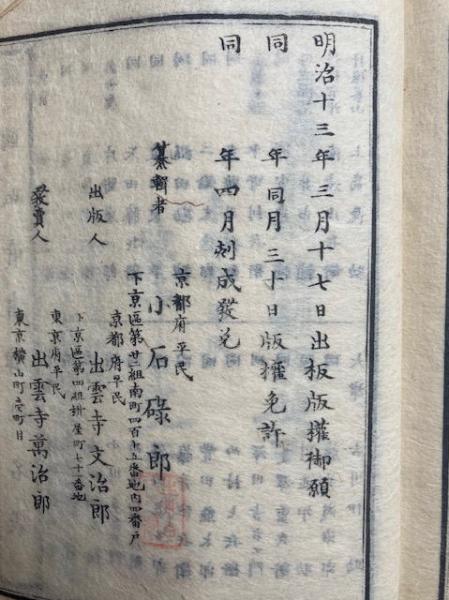 明治十三年三月十七日出板版權御願
同　年同月三十日版權免許
同　年四月刻成發兌
纂輯者
京都府平民
小石碌郎
下京區第廿二組南町四百十五番地内四番戸
出版人
京都府平民
出雲寺文治郎
下京區第四組桝屋町七十番地
發賣人
東京府平民
出雲寺萬治郎
東京横山町壱町目